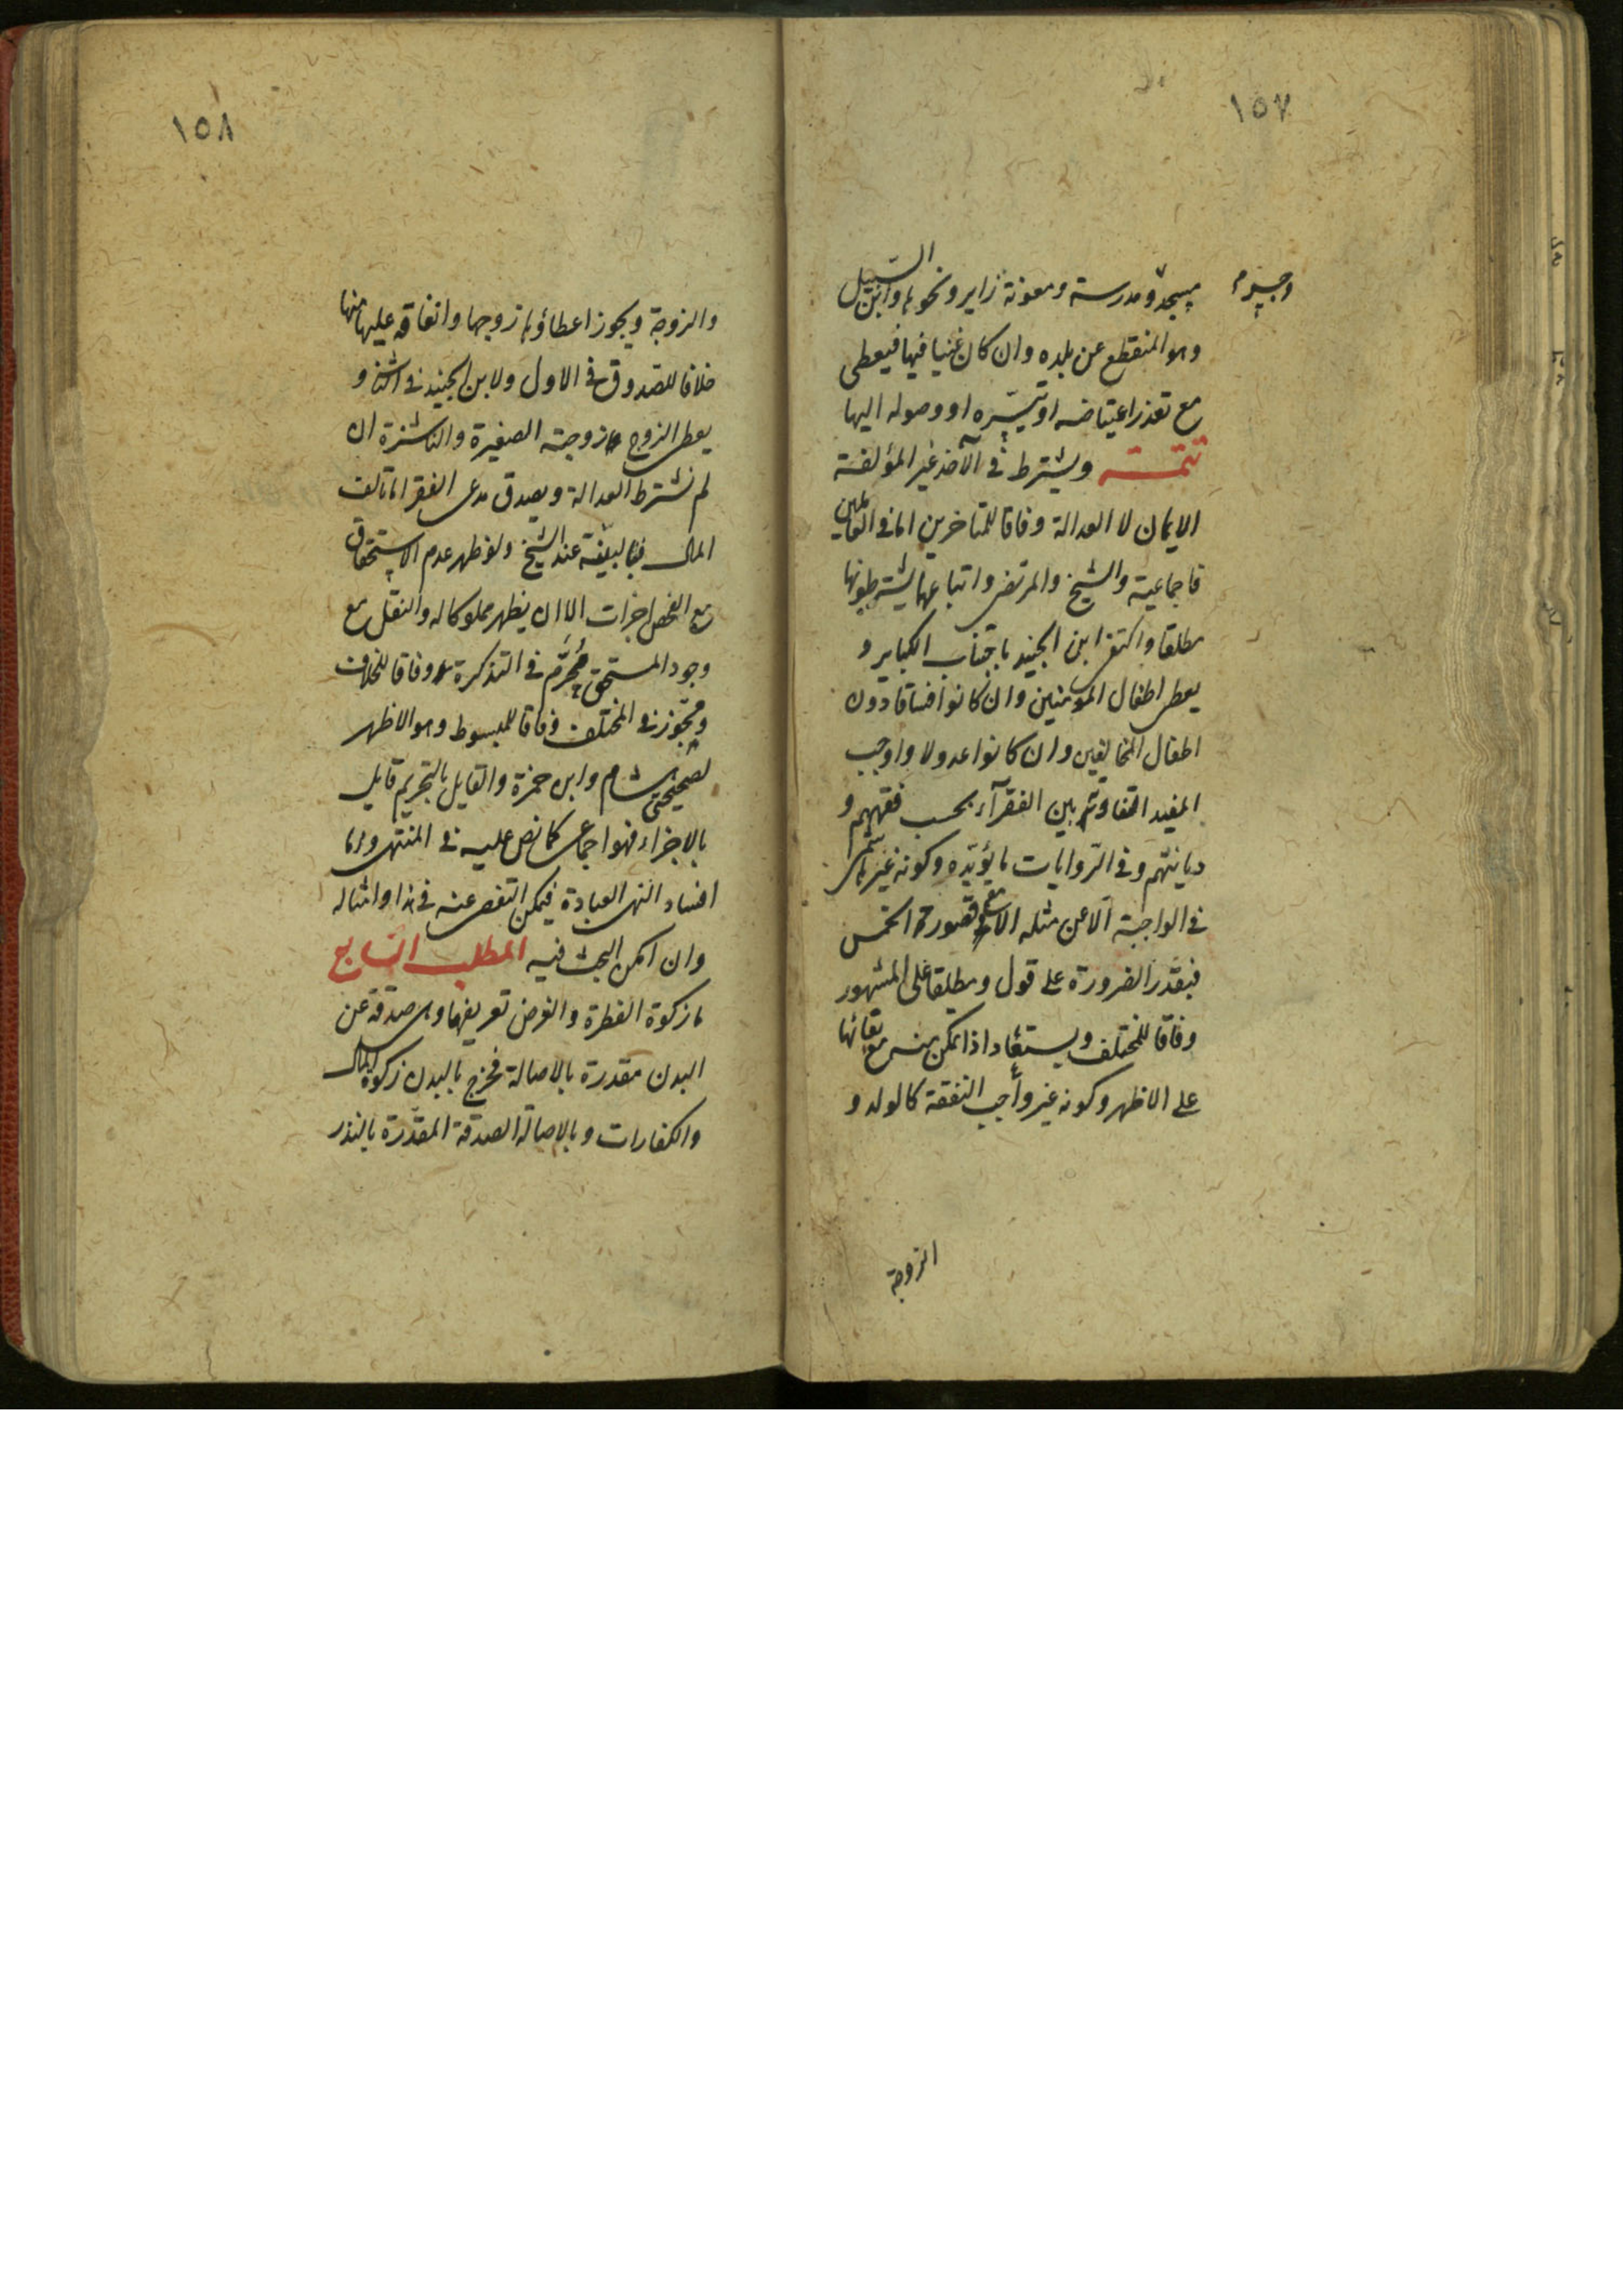 ١٥٧
وجسر
مسجد ومدرسة ومعونة زاير ونحوها وابن السّبيل
وهو المنقطع عن بلده وان كان غنيا فيها فيعطى
مع تعذر اعتياضه او تيسّره او وصوله اليها
تتمة ويشترط فى الآخذ غير المؤلفة
الايمان لا العدالة وفاقا للمتاخرين اما فى العاملين
فاجماعية والشيخ والمرتضى واتباعهما يشترطونها
مطلقا واكتفى ابن الجنيد باجتناب الكباير و
يعطى اطفال المؤمنين وان كانوا فساقا دون
اطفال المخالفين وان كانوا عدولا واوجب
المفيد التفاوت بين الفقرآء بحسب فقههم و
ديانتهم وفى الرّوايات ما يؤيّده وكونه غير هاشمى
فى الواجبة الا عن مثله الا مع قصور الخمس
فبقدر الضرورة على قول ومطلقا على المشهور
وفاقا للمختلف ويستعاد اذا تمكن منه مع بقائها
على الاظهر وكونه غير واجب النفقة كالولد و
الزوجة
١٥٨
والزوجة ويجوز اعطاؤها زوجها وانفاقه عليها منها
خلافا للصدوق فى الاول ولابن الجنيد فى الثانى و
يعطى الزوج زوجته الصغيرة والناشزة ان
لم نشترط العدالة ويصدق مدعى الفقر الا تالف
المال فبالبينة عند الشيخ ولو ظهر عدم الاستحقاق
مع الفحص اجزات الا ان يظهر مملوكا له والنقل مع
وجود المستحق محرّم فى التذكرة وفاقا للخلاف
ومجّوز فى المختلف وفاقا للمبسوط وهو الاظهر
لصحيحتى هشام وابن حمزة والقايل بالتحريم قايل
بالاجزاء فهو اجماعى كما نص عليه فى المنتهى واما
افساد النهى العبادة فيمكن التفصى عنه فى هذا وامثاله
وان امكن البحث فيه المطلب السّابع
ما زكوة الفطرة والغرض تعريفها وهى صدقة عن
البدن مقدرة بالاصالة فخرج بالبدن زكوة المال
والكفارات وبالاصالة الصدقة المقدّرة بالنذر